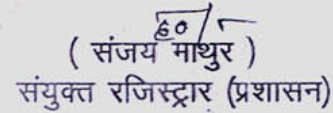 ह०/-
( संजय माथुर )
संयुक्त रजिस्ट्रार (प्रशासन)